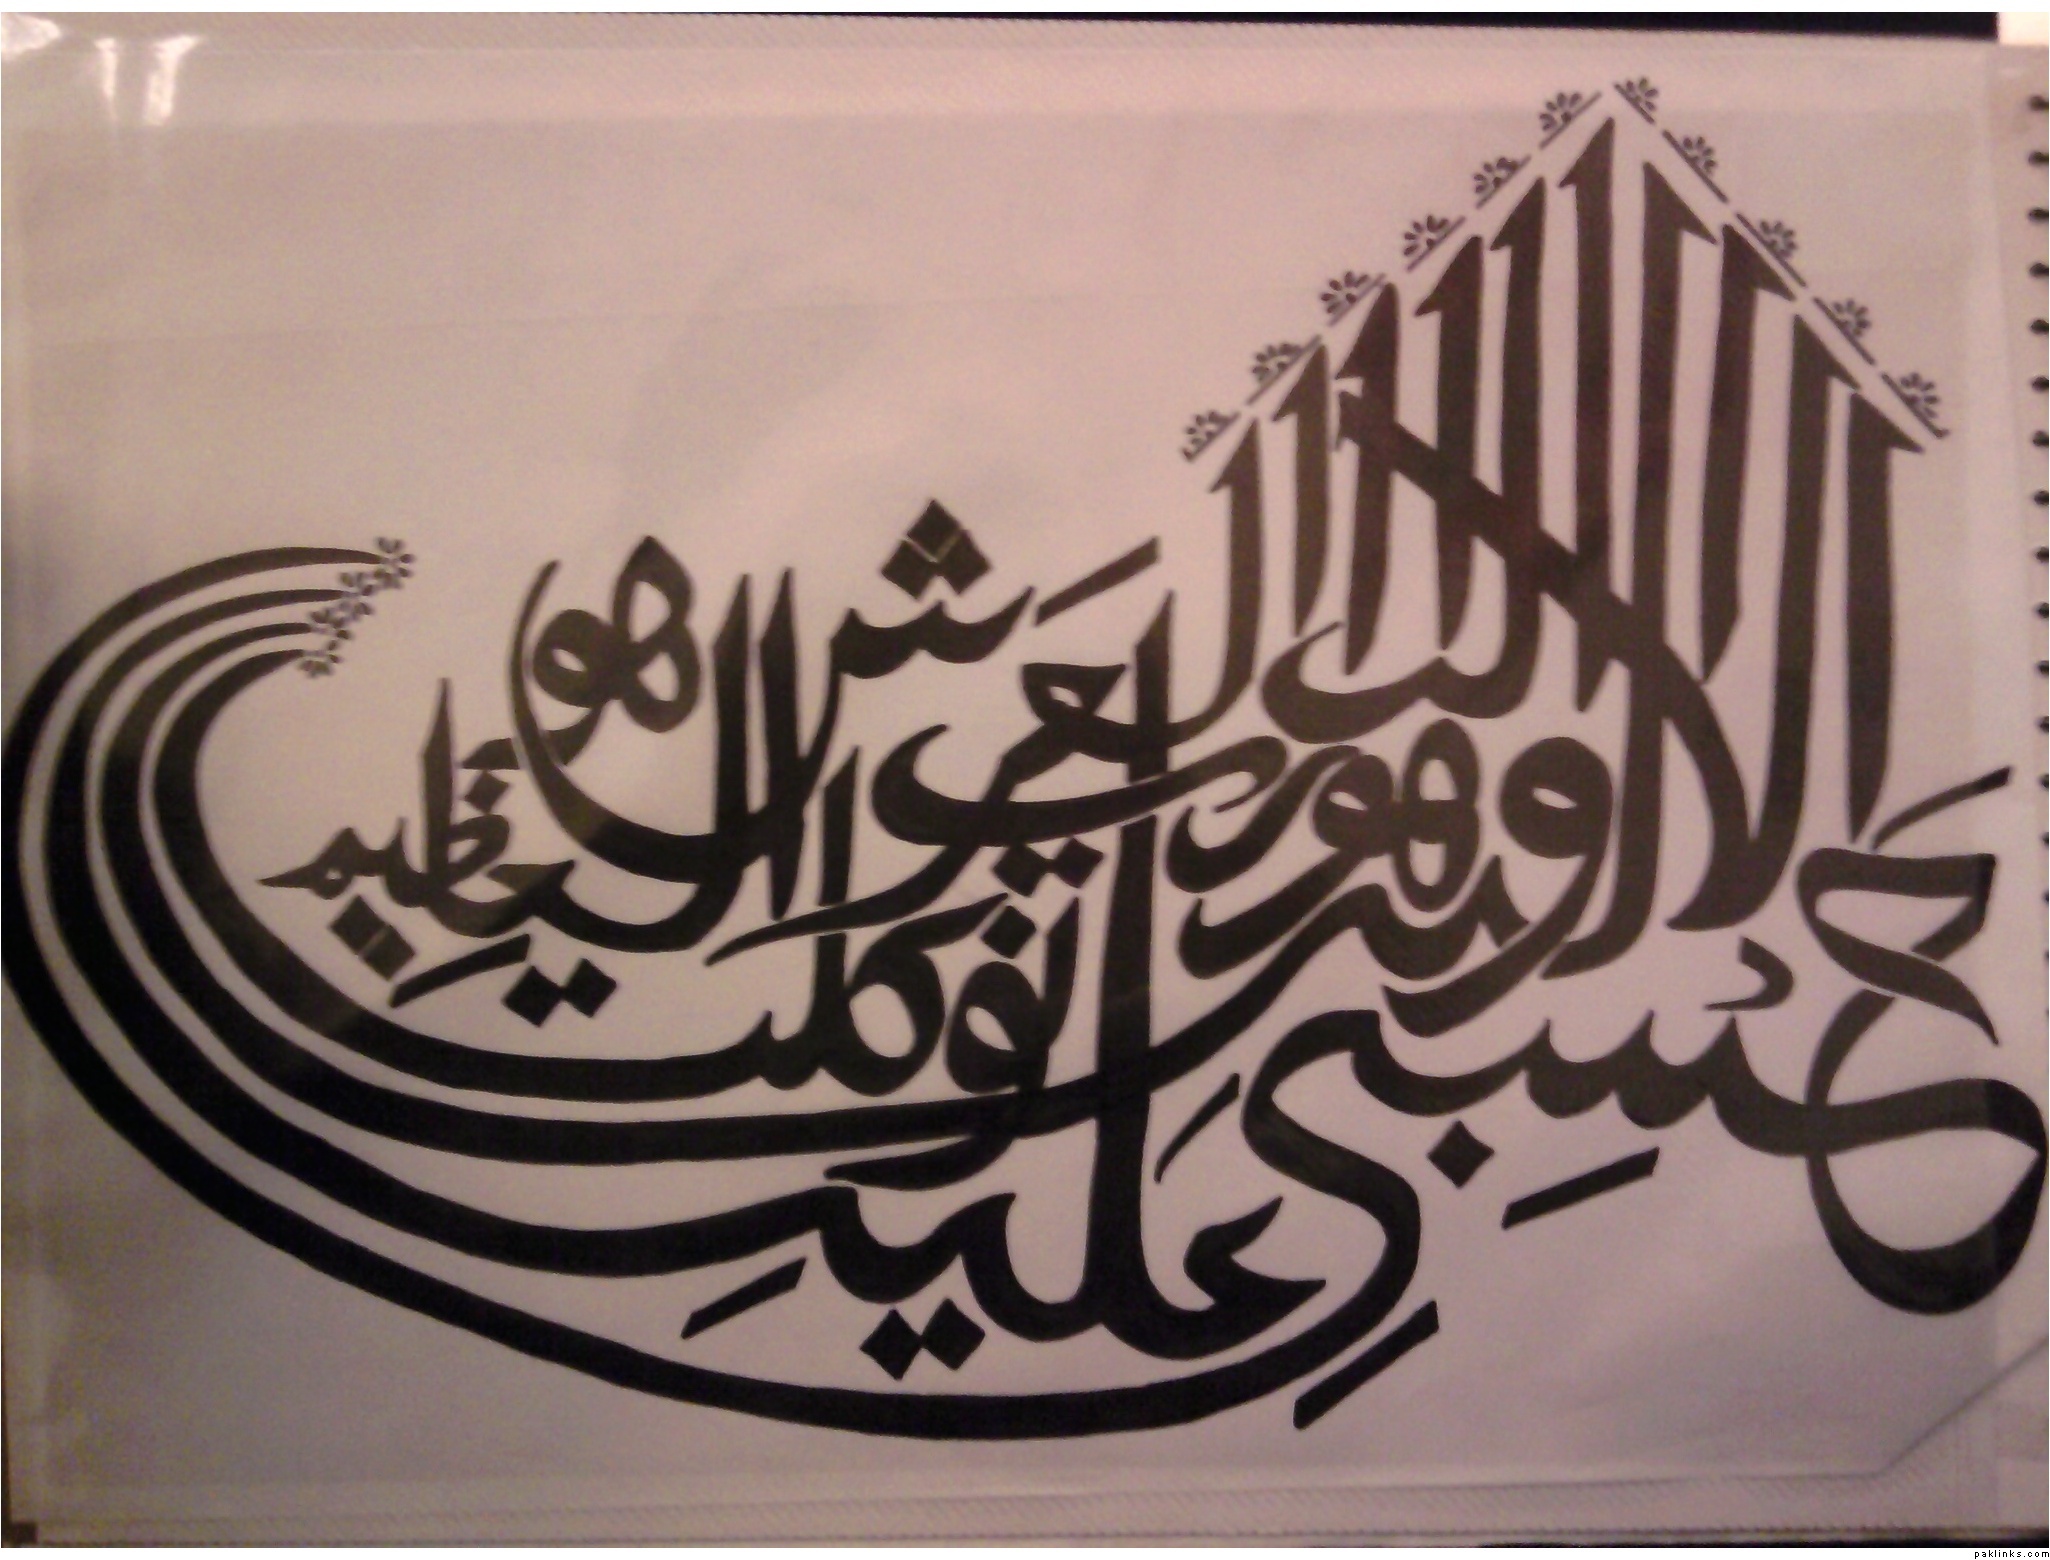 حَسْبِيَ اللّٰهُ لَا اِلٰهَ اِلَّا هُوَ عَلَيْهِ تَوَكَّلْتُ وَهُوَ رَبُّ الْعَرْشِ الْعَظِيْمِ
paklinks.com